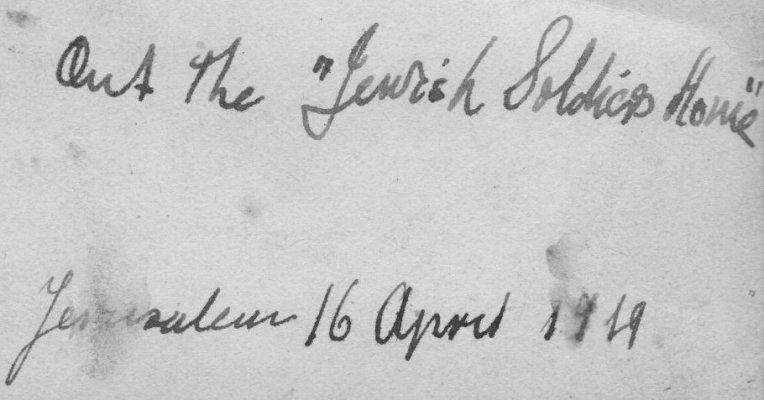 Out the "Jewish Soldiers Home"
Jerusalem 16 April 1919